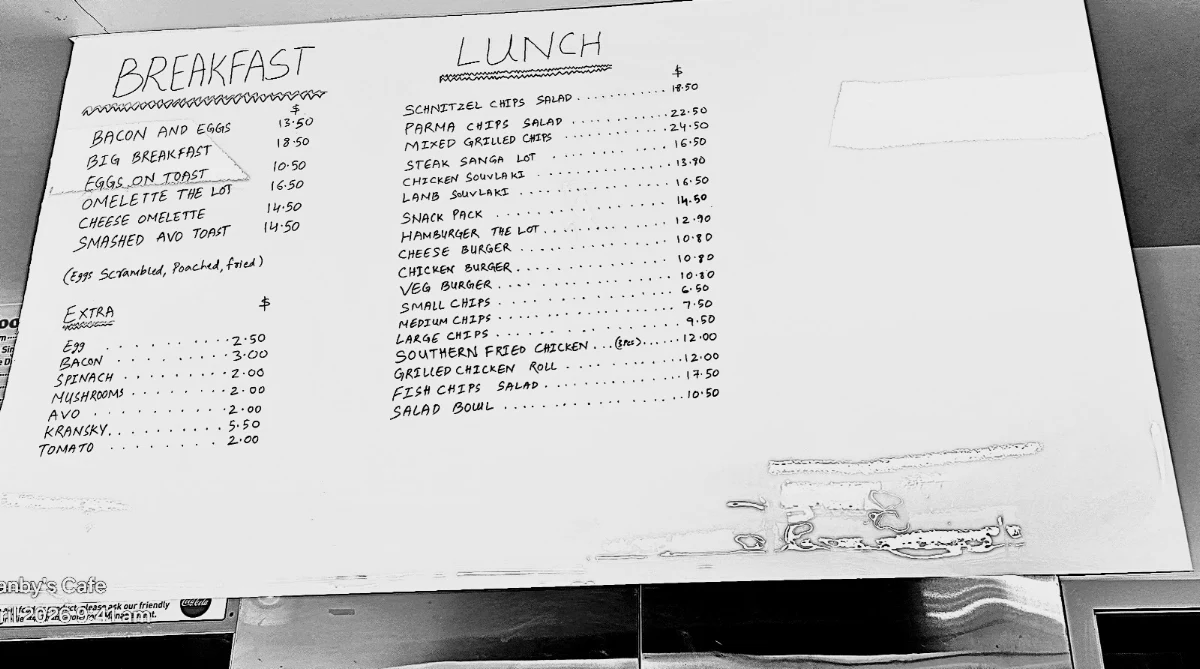 BREAKFAST
$
BACON AND EGGS 13.50
BIG BREAKFAST 18.50
EGGS ON TOAST 10.50
OMELETTE THE LOT 16.50
CHEESE OMELETTE 14.50
SMASHED AVO TOAST 14.50
(Eggs Scrambled, Poached, fried)
EXTRA $
Egg ........ 2.50
BACON ........ 3.00
SPINACH ........ 2.00
MUSHROOMS ........ 2.00
AVO ........ 2.00
KRANSKY ........ 5.50
TOMATO ........ 2.00
LUNCH
$
SCHNITZEL CHIPS SALAD ........ 18.50
PARMA CHIPS SALAD ........ 22.50
MIXED GRILLED CHIPS ........ 24.50
STEAK SANGA LOT ........ 16.50
CHICKEN SOUVLAKI ........ 13.80
LAMB SOUVLAKI ........ 16.50
SNACK PACK ........ 14.50
HAMBURGER THE LOT ........ 12.90
CHEESE BURGER ........ 10.80
CHICKEN BURGER ........ 10.80
VEG BURGER ........ 10.80
SMALL CHIPS ........ 6.50
MEDIUM CHIPS ........ 7.50
LARGE CHIPS ........ 9.50
SOUTHERN FRIED CHICKEN ... (3pcs) ...... 12.00
GRILLED CHICKEN ROLL ........ 12.00
FISH CHIPS SALAD ........ 17.50
SALAD BOWL ........ 10.50
anby's Cafe
2026 9:41am
please ask our friendly
Coca-Cola